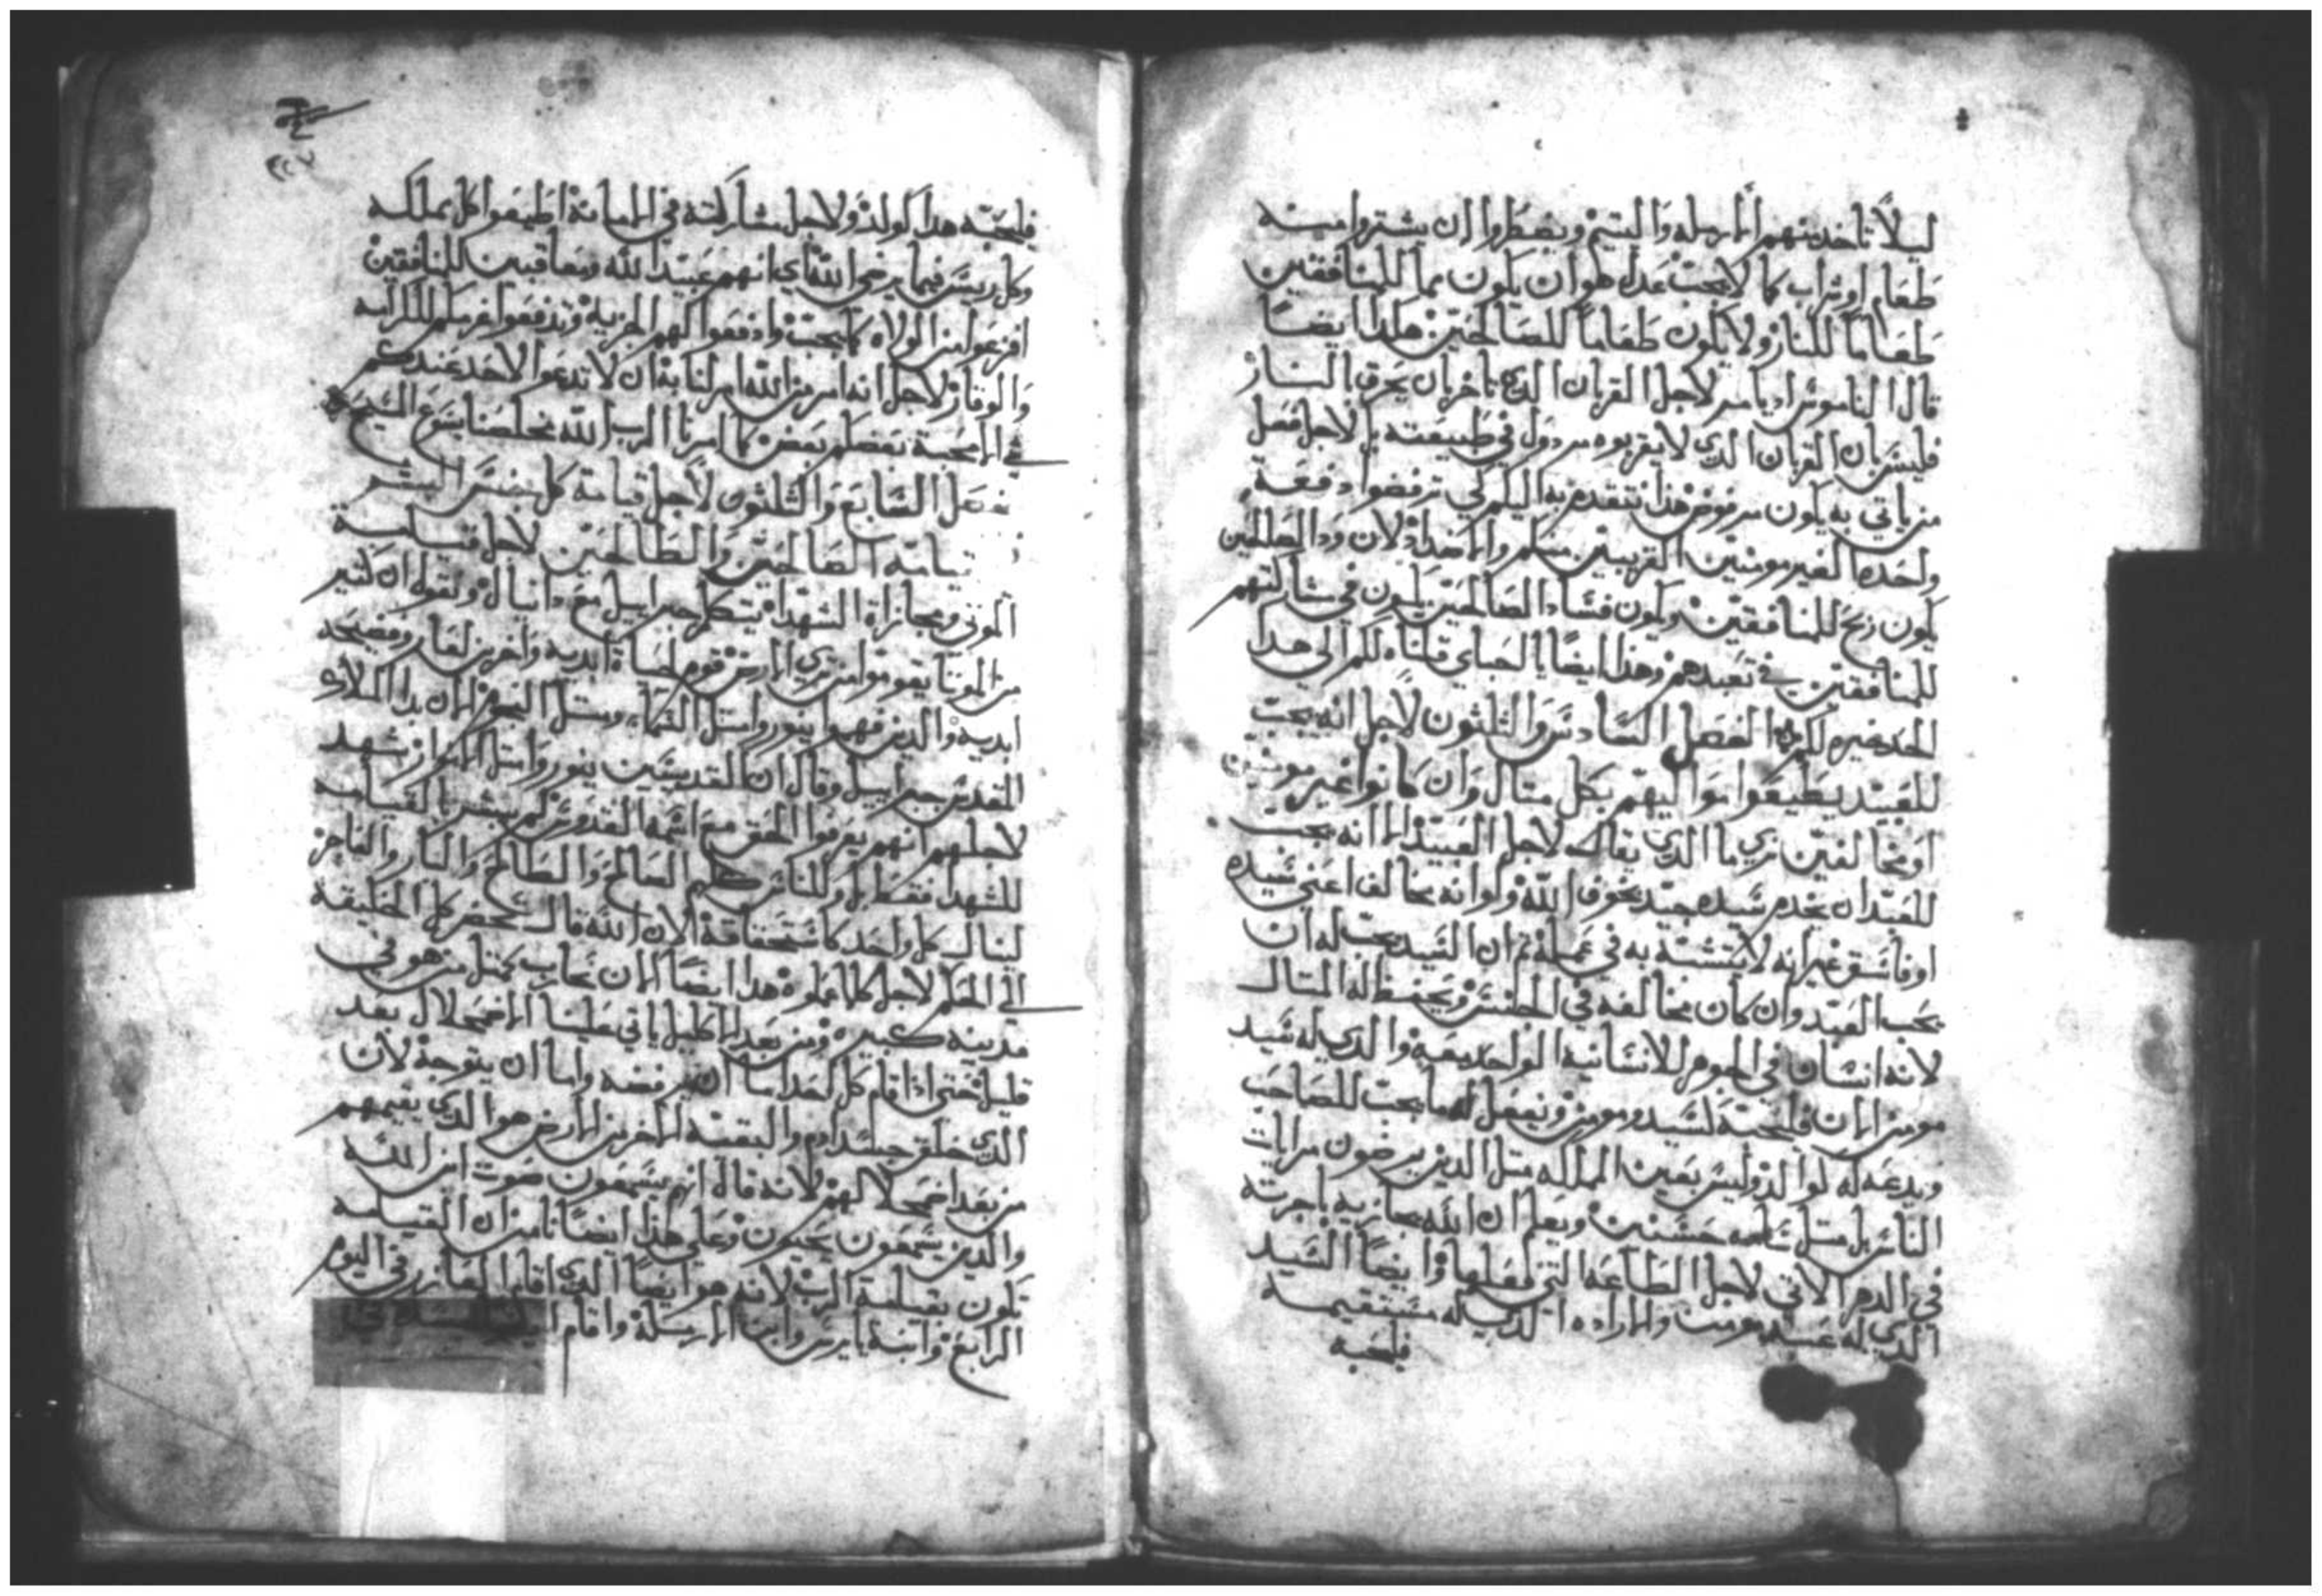 ليلاً تاخد منهم الارمله واليتيم ويضطروا ان يشتروا منه
طعام او شراب كما لا يجب عدل هو ان يكون بما للمنافقين
طعاماً للنار ولا يكون طعاماً للصالحين هكدا ايضاً
قال الناموس اد يامر لاجل القربان الدي ياخر بان يحرق بالنار
فليس بان القربان الدي لا يقربوه مردول في طبيعته بل لاجل فصل
من ياتي به يكون مرفوض هذا نتقدم به اليكم لكي ترفضوا دفعة
واحده الغير مومنين القريبين منكم والاضداد لان ود الصالحين
يكون ربح للمنافقين ويكون فساد الصالحين يكون في مشاركتهم
للمنافقين في تعبدهم وهذا ايضاً يا احباي قلناه لكم الى هدا
الحد فيه لكم الفصل السادس والثلثون لاجل انه يجب
للعبيد يطيعوا مواليهم بكل مثال وان كانوا غير مومنين
او مخالفين نري ما الدي يقال لاجل العبيد الا انه يجب
للعبد ان يخدم سيده جيد بخوف الله ولو انه مخالف اعني سيده
او فاسق غير انه لا يتشبه به في عمله ثم ان السيد يجب له ان
يحب العبد وان كان مخالفه في الجنس ويحفظ له المثال
لانه انسان في الجوهر للانسانيه الواحد معه والدي له سيد
مومن الان فليحبه لسيد ومومن ويفعل له ما يجب للصاحب
ويدعه له لوالد وليس بعين المملكه متل الدين يرضون مرايات
الناس بل متل شاهد حسنين ويعلم ان الله يجازيه باجرته
في الدهر الاتي لاجل الطاعه التي فعلها وايضاً السيد
الدي له عبد مومن والاراده الدي له مستقيمه
فليحبه
فليحبه هدا كولد ولاجل مشاركته في الامانة اطيعوا كل مملكه
وكل رييس فيما يرضي الله اي انهم عبيد الله ومعاقبين للمنافقين
افزعوا من الولاه كما يجب وادفعوا لهم الجزيه وتدفعوا غرمكم للكرامه
والوقار لاجل انه امر من الله امر لنا به ان لا تدعوا لاحد عندكم
في المحبة بعضكم بعض كما امرنا الرب الله مخلصنا يسوع المسيح
فصل السابع والثلثون لاجل قيامة كل جنس البشر
قيامة الصالحين والطالحين لاجل قيامة
الموتي ومجازاة الشهدا يتكلم جبراييل مع دانيال ولقوله ان كثير
من الموتا يقوموا من تري الارض قوم لحياة ابديه واخرين لعار وفضيحه
ابديه والدين فهموا ينوروا متل السماء ومتل النجوم الان بدا الملاك
المقدس جبراييل وقال ان القديسين ينوروا متل الانوار شهد
لاجلهم انهم يعرفوا الحق مع اسمه القدوس لم يبشر بالقيامه
للشهدا فقط بل وللناس كلهم الصالح والطالح والبار والفاجر
لينال كل واحد كاستحقاقه لان الله قال يحضر كل الخليقه
الى الحكم لاجل كلما عملوه هدا ايضاً الان نحارب كمتل من هو في
مدينه كبيره ومن بعد الاكليل ياتي علينا الاضمحلال بعد
قليل حتى ادا قام كل احد اما ان يرفضه واما ان يتوجه لان
الدي خلق جسد ادم والبقيه الاخر من الارض هو الدي يقيمهم
من بعد اضمحلالهم لانه قال انهم يسمعون صوت ابن الله
والدين يسمعون يحيون وعلي هذا ايضاً نامن ان القيامه
تكون بقيامة الرب لانه هو ايضاً الدي اقام العازر في اليوم
الرابع وابنة يايرس وابن الارمله واقام